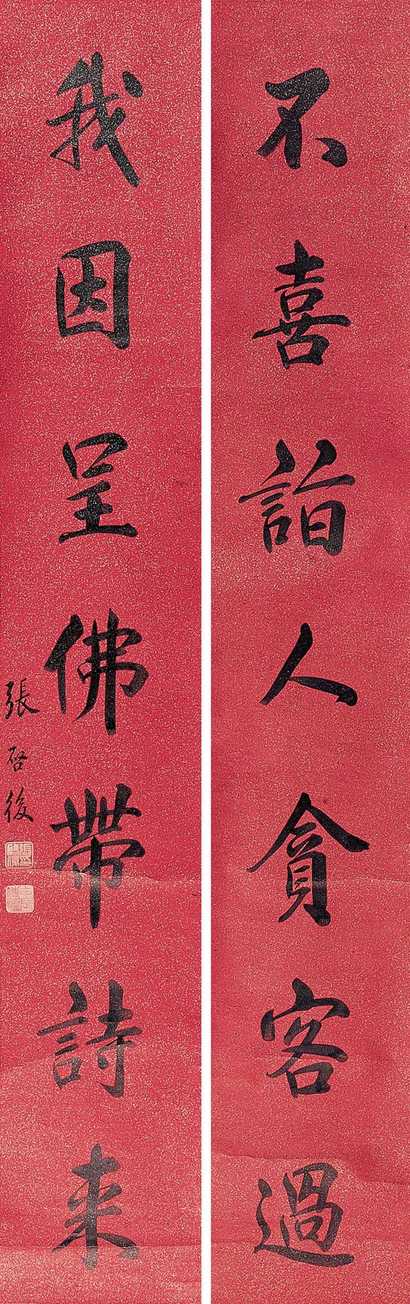 不喜詣人貪客過
我因呈佛帶詩来
張啓後